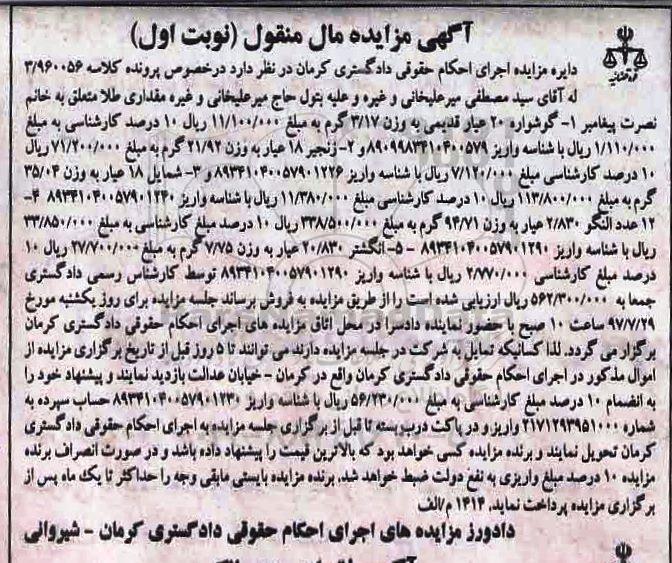 آگهی مزایده مال منقول (نوبت اول)
دایره مزایده اجرای احکام حقوقی دادگستری کرمان در نظر دارد درخصوص پرونده کلاسه ۳/۹۶۰۰۵۶
له آقای سید مصطفی میرعلیخانی و غیره و علیه بتول حاج میرعلیخانی و غیره مقداری طلا متعلق به خانم
نصرت پیغامبر ۱- گوشواره ۲۰ عیار قدیمی به وزن ۳/۱۷ گرم به مبلغ ۱۱/۱۰۰/۰۰۰ ریال ۱۰ درصد کارشناسی به مبلغ
۱/۱۱۰/۰۰۰ ریال با شناسه واریز ۸۹۰۹۹۸۳۴۱۰۴۰۰۵۷۹ و ۲- زنجیر ۱۸ عیار به وزن ۲۱/۹۲ گرم به مبلغ ۷۱/۲۰۰/۰۰۰ ریال
۱۰ درصد کارشناسی مبلغ ۷/۱۲۰/۰۰۰ ریال با شناسه واریز ۸۹۳۴۱۰۴۰۰۵۷۹۰۱۲۲۶ و ۳- شمایل ۱۸ عیار به وزن ۳۵/۰۴
گرم به مبلغ ۱۱۳/۸۰۰/۰۰۰ ریال ۱۰ درصد کارشناسی مبلغ ۱۱/۳۸۰/۰۰۰ ریال با شناسه واریز ۸۹۳۴۱۰۴۰۰۵۷۹۰۱۲۴۰ ۴-
۱۲ عدد النگو ۲/۸۳۰ عیار به وزن ۹۴/۷۱ گرم به مبلغ ۳۳۸/۵۰۰/۰۰۰ ریال ۱۰ درصد مبلغ کارشناسی به مبلغ ۳۳/۸۵۰/۰۰۰
ریال با شناسه واریز ۸۹۳۴۱۰۴۰۰۵۷۹۰۱۲۹۰ - ۵- انگشتر ۲۰/۸۳۰ عیار به وزن ۷/۷۵ گرم به مبلغ ۲۷/۷۰۰/۰۰۰ ریال ۱۰
درصد مبلغ کارشناسی ۲/۷۷۰/۰۰۰ ریال با شناسه واریز ۸۹۳۴۱۰۴۰۰۵۷۹۰۱۲۹۰ توسط کارشناس رسمی دادگستری
جمعا به ۵۶۲/۳۰۰/۰۰۰ ریال ارزیابی شده است را از طریق مزایده به فروش برساند جلسه مزایده برای روز یکشنبه مورخ
۹۷/۷/۲۹ ساعت ۱۰ صبح با حضور نماینده دادسرا در محل اتاق مزایده های اجرای احکام حقوقی دادگستری کرمان
برگزار می گردد. لذا کسانیکه تمایل به شرکت در جلسه مزایده دارند می توانند تا ۵ روز قبل از تاریخ برگزاری مزایده از
اموال مذکور در اجرای احکام حقوقی دادگستری کرمان واقع در کرمان - خیابان عدالت بازدید نمایند و پیشنهاد خود را
به انضمام ۱۰ درصد مبلغ کارشناسی به مبلغ ۵۶/۲۳۰/۰۰۰ ریال با شناسه واریز ۸۹۳۴۱۰۴۰۰۵۷۹۰۱۲۳۰ حساب سپرده به
شماره ۲۱۷۱۲۹۳۹۵۱۰۰۰ واریز و در پاکت درب بسته تا قبل از برگزاری جلسه مزایده به اجرای احکام حقوقی دادگستری
کرمان تحویل نمایند و برنده مزایده کسی خواهد بود که بالاترین قیمت را پیشنهاد داده باشد و در صورت انصراف برنده
مزایده ۱۰ درصد مبلغ واریزی به نفع دولت ضبط خواهد شد. برنده مزایده بایستی مابقی وجه را حداکثر تا یک ماه پس از
برگزاری مزایده پرداخت نماید. ۱۴۱۴ م/الف
دادورز مزایده های اجرای احکام حقوقی دادگستری کرمان - شیروانی